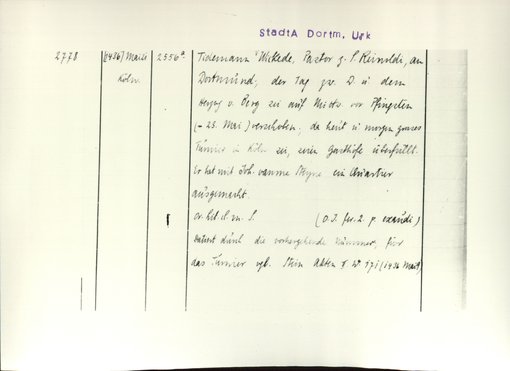 StadtA Dortm. Urk
2778 (1436) Mai 21 2556a Tidemann Wickede, Pastor z. S. Reinoldi, an
Köln Dortmund, der Tag zw. D. u dem
Herzog v. Berg sei auf Mittw. vor Pfingsten
(= 23. Mai) verschoben, da heut u morgen grosses
Turnier in Köln sei, seien Gasthöfe überfüllt.
Er hat mit Joh. vanme ein Quartier
ausgemacht.
Or. lit. cl. m. S. (O. J. fer. 2. p. exaudi.)
Datiert durch die vorhergehende Nummer, für
das Turnier vgl. Stein Akten I. W 171 (1436 Mai)